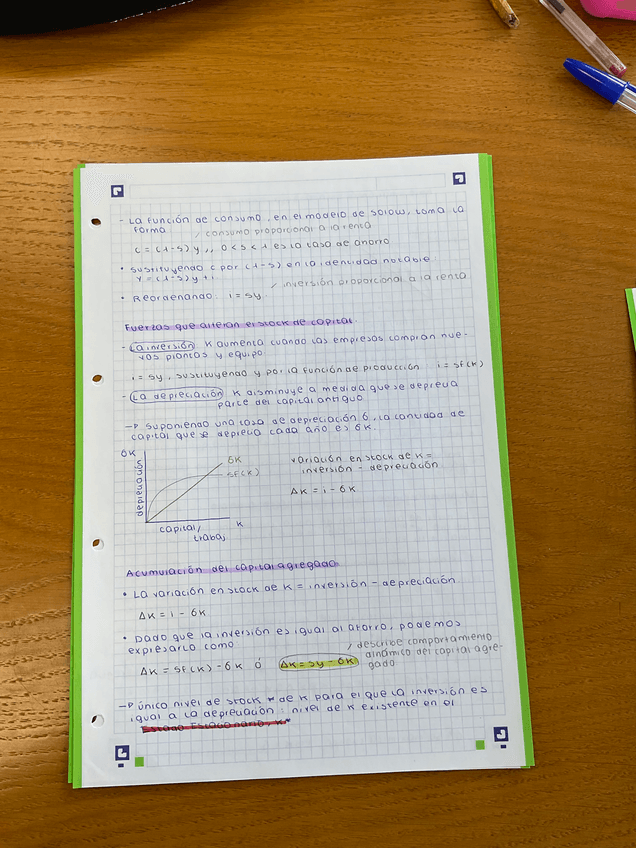 - La función de consumo, en el modelo de Solow, toma la
forma / consumo proporcional a la renta
c = (1-s) y ,, 0 < s < 1 es la tasa de ahorro
• Sustituyendo c por (1-s) en la identidad notable:
Y = (1-s)y + i
/ inversión proporcional a la renta
• Reordenando: i = sy.
Fuerzas que alteran el stock de capital.
- La inversión K aumenta cuando las empresas compran nue-
vos plantas y equipo.
i = sy, sustituyendo y por la función de producción: i = sf(k)
- La depreciación K disminuye a medida que se deprecia
parte del capital antiguo.
→ Suponiendo una tasa de depreciación δ, la cantidad de
capital que se deprecia cada año es δK.
δK
depreciación
δK
sf(k)
K
capital/
trabaj
variación en stock de K =
inversión - depreciación
ΔK = i - δK
Acumulación del capital agregado.
• La variación en stock de K = inversión - depreciación
ΔK = i - δK
• Dado que la inversión es igual al ahorro, podemos
expresarla como:
/ describe comportamiento
dinámico del capital agre-
gado
ΔK = sf(k) - δK ó ΔK = sy - δK
→ único nivel de stock * de K para el que la inversión es
igual a la depreciación: nivel de K existente en el
Estado Estacionario, K*